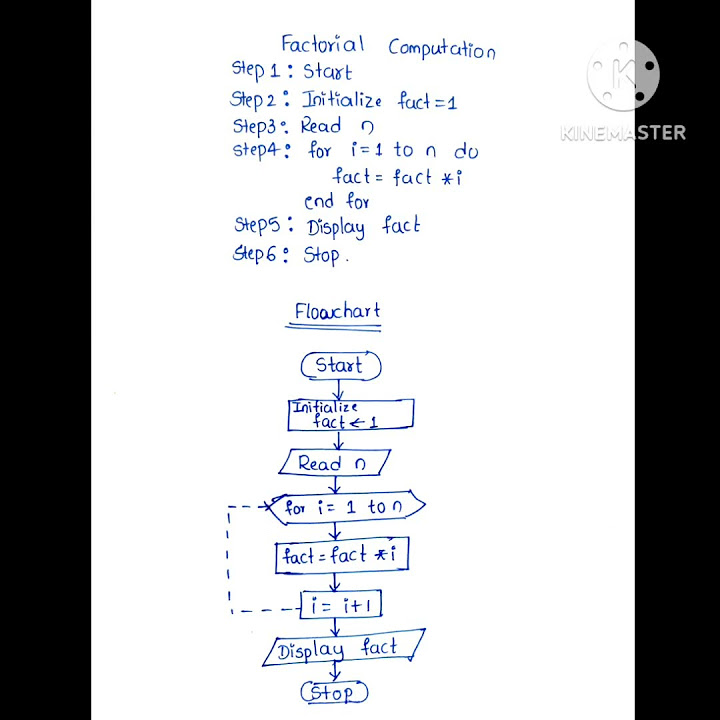 Factorial Computation
Step 1: Start
Step 2: Initialize fact=1
Step3: Read n
Step4: for i=1 to n do
fact= fact *i
end for
Step5: Display fact
Step6: Stop.
KINEMASTER
Flowchart
Start
Initialize
fact ← 1
Read n
for i= 1 to n
fact=fact *i
i= i+1
Display fact
Stop